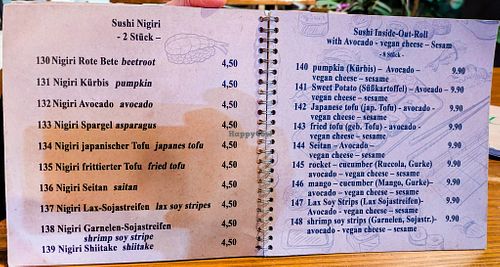 Sushi Nigiri
- 2 Stück –
130 Nigiri Rote Bete beetroot 4,50
131 Nigiri Kürbis pumpkin 4,50
132 Nigiri Avocado avocado 4,50
133 Nigiri Spargel asparagus 4,50
134 Nigiri japanischer Tofu japanes tofu 4,50
135 Nigiri frittierter Tofu fried tofu 4,50
136 Nigiri Seitan saitan 4,50
137 Nigiri Lax-Sojastreifen lax soy stripes 4,50
138 Nigiri Garnelen-Sojastreifen 4,50
shrimp soy stripe
139 Nigiri Shiitake shiitake 4,50
Sushi Inside-Out-Roll
with Avocado - vegan cheese – Sesam
- 8 Stück -
140 pumpkin (Kürbis) – Avocado – 9.90
vegan cheese – sesame
141 Sweet Potato (Süßkartoffel) – Avocado – 9.90
vegan cheese – sesame
142 Japanese tofu (jap. Tofu) - avocado - 9.90
vegan cheese - sesame
143 fried tofu (geb. Tofu) - avocado - 9.90
vegan cheese - sesame
144 Seitan – Avocado – 9.90
vegan cheese – sesame
145 rocket – cucumber (Ruccola, Gurke) 9.90
avocado – vegan cheese – sesame
146 mango – cucumber (Mango, Gurke) 9.90
avocado – vegan cheese – sesame
147 Lax Soy Strips (Lax Sojastreifen)- 9.90
Avocado - vegan cheese – sesame
148 shrimp soy strips (Garnelen, Sojastr.)- 9.90
avocado – vegan cheese – sesame